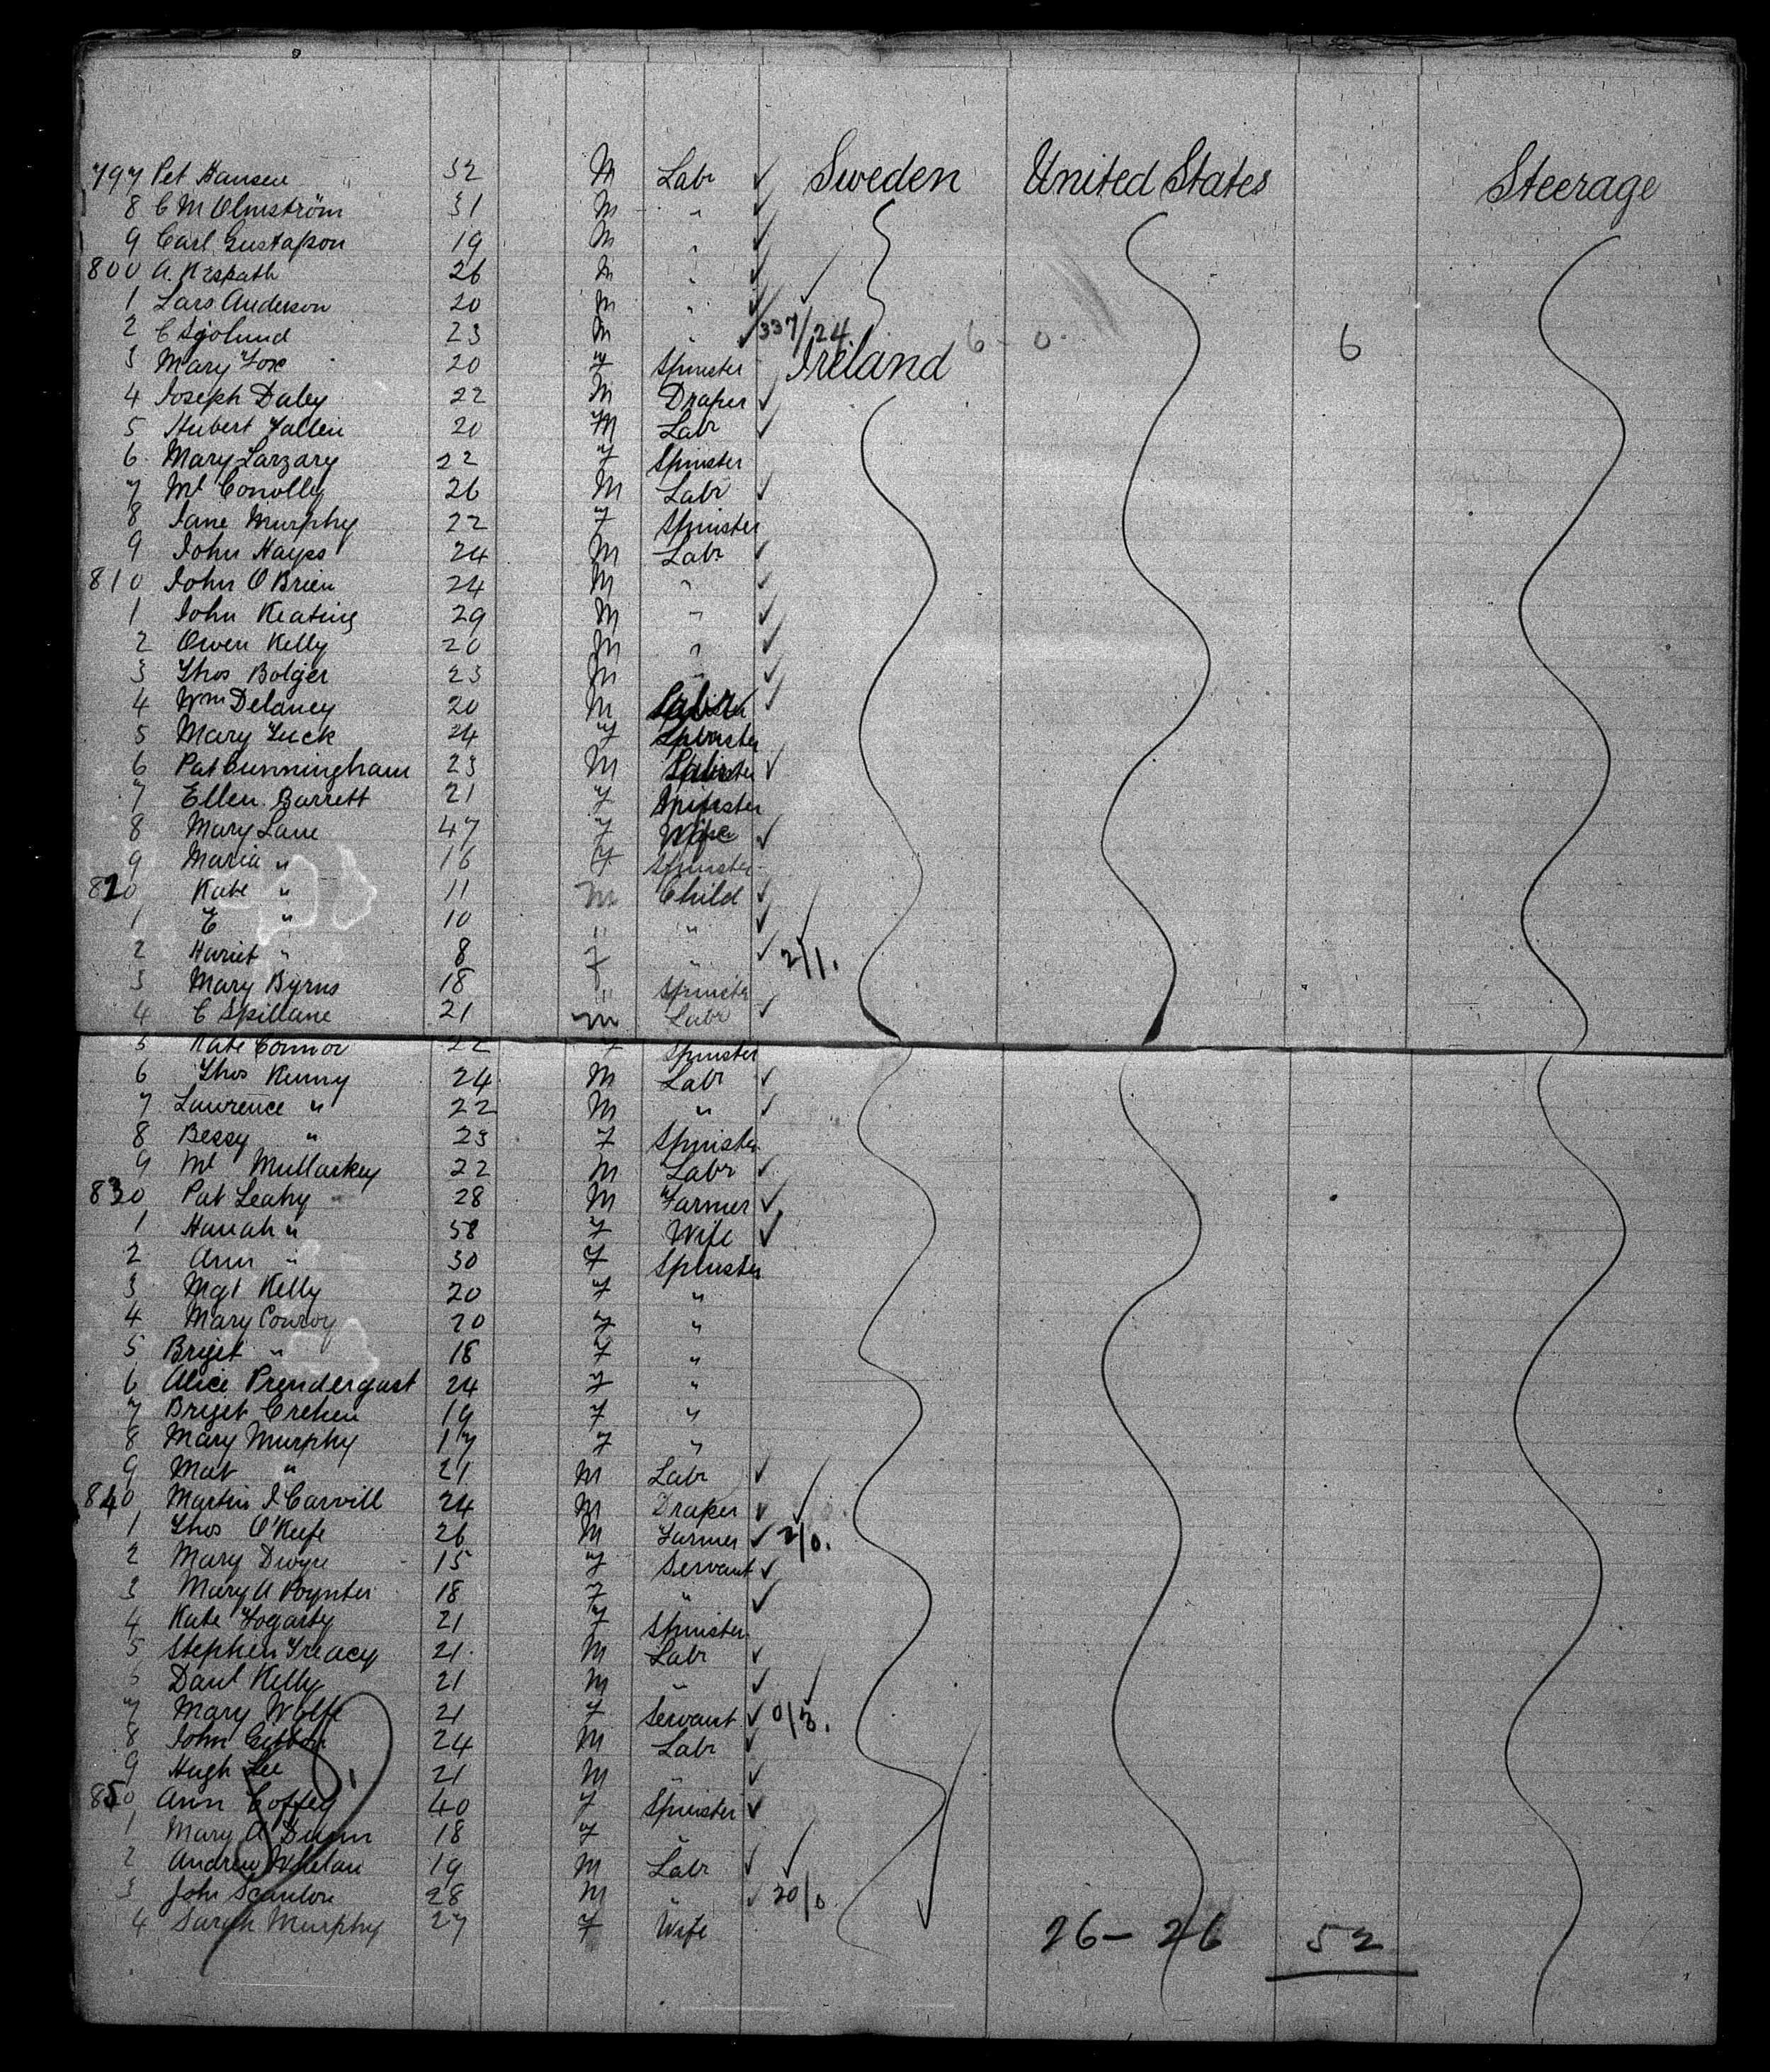 797 Pet Hansen 32 M Labr Sweden United States Steerage
8 C M Olmström 31 M "
9 Carl Gustafson 19 M "
800 A. 26 M "
1 Lars Anderson 20 M "
2 C Sjolund 23 M " 337/24 6 - 0. 6
3 Mary Fox 20 F Spinster Ireland
4 Joseph Daley 22 M Draper
5 Hubert Fallen 20 M Labr
6 Mary Larzary 22 F Spinster
7 Ml Conolly 26 M Labr
8 Jane Murphy 22 F Spinster
9 John Hayes 24 M Labr
810 John O Brien 24 M "
1 John Keating 29 M "
2 Owen Kelly 20 M "
3 Thos Bolger 23 M "
4 Wm Delaney 20 M Labr
5 Mary Luck 24 F Spinster
6 Pat Cunningham 23 M Labr
7 Ellen Barrett 21 F Spinster
8 Mary Lane 47 F Wife
9 Maria " 16 F Spinster
820 Kate " 11 m Child
1 E " 10 " "
2 Hariet " 8 F " 2/1.
3 Mary Byrns 18 " Spinster
4 C Spillane 21 m Labr
5 Kate Connor 22 F Spinster
6 Thos Kenny 24 M Labr
7 Lawrence " 22 M "
8 Bessy " 23 F Spinster
9 Ml Mullarkey 22 M Labr
830 Pat Leahy 28 M Farmer
1 Hanah " 58 F Wife
2 Ann " 30 F Spinster
3 Mgt Kelly 20 F "
4 Mary Conroy 20 F "
5 Brijet " 18 F "
6 Alice Prendergast 24 F "
7 Brijet Crehen 19 F "
8 Mary Murphy 17 F "
9 Mat " 21 M Labr
840 Martin J Carvill 24 M Draper
1 Thos O'Keefe 26 M Farmer 2/0.
2 Mary Dwyre 15 F Servant
3 Mary A Poynter 18 F "
4 Kate Fogarty 21 F Spinster
5 Stephen Treacy 21 M Labr
6 Danl Kelly 21 M "
7 Mary Wolfe 21 F Servant 0/3.
8 John Gibbon 24 M Labr
9 Hugh Lee 21 M "
850 Ann Coffey 40 F Spinster
1 Mary A Dunn 18 F "
2 Andrew Whelan 19 M Labr
3 John Scanlon 28 M " 20/0.
4 Sarah Murphy 27 F Wife 26 - 26 52